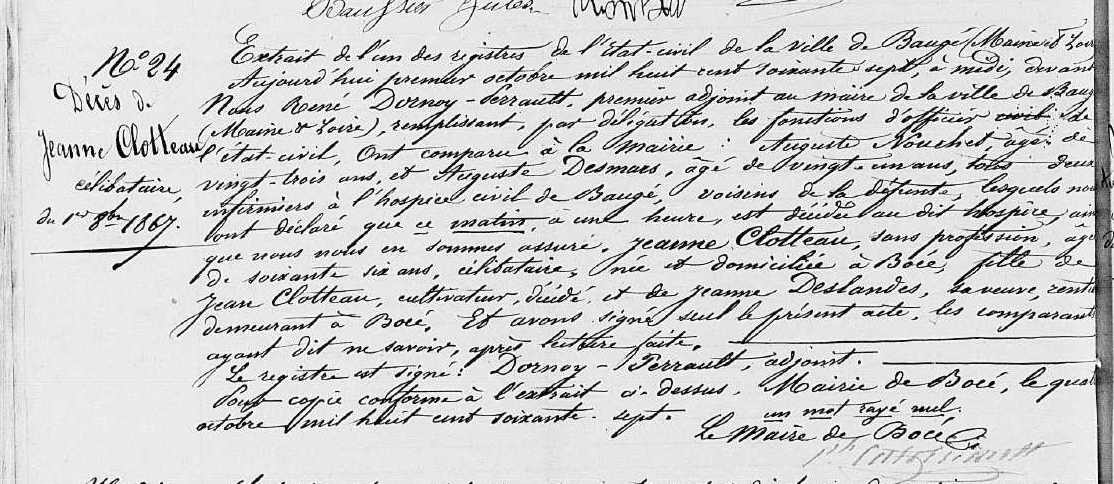 N.o 24
Décès de
Jeanne Clotteau,
célibataire,
du 1er 8bre 1867.
Extrait de l'un des registres de l'état-civil de la ville de Baugé (Maine & Loire
Aujourd'hui premier octobre mil huit cent soixante sept, à midi, devant
Nous René Dornoy-Perrault, premier adjoint au maire de la ville de Baug
(Maine & Loire), remplissant, par délégation, les fonctions d'officier civil de
l'état-civil, Ont comparu à la Mairie : Auguste Nouchet, âgé de
vingt-trois ans, et Auguste Desmars, âgé de vingt-un ans, tous deux
infirmiers à l'hospice civil de Baugé, voisins de la défunte, lesquels nous
ont déclaré que ce matin, à une heure, est décédée au dit hospice, ain
que nous nous en sommes assuré, Jeanne Clotteau, sans profession, âgée
de soixante six ans, célibataire, née et domiciliée à Bocé, fille de
Jean Clotteau, cultivateur, décédé et de Jeanne Deslandes, sa veuve, rentiè
demeurant à Bocé. Et avons signé seul le présent acte, les comparants
ayant dit ne savoir, après lecture faite.
Le registre est signé : Dornoy-Perrault, adjoint.
Pour copie conforme à l'extrait ci-dessus. Mairie de Bocé, le quat
octobre mil huit cent soixante-sept.
un mot rayé nul.
Le Maire de Bocé